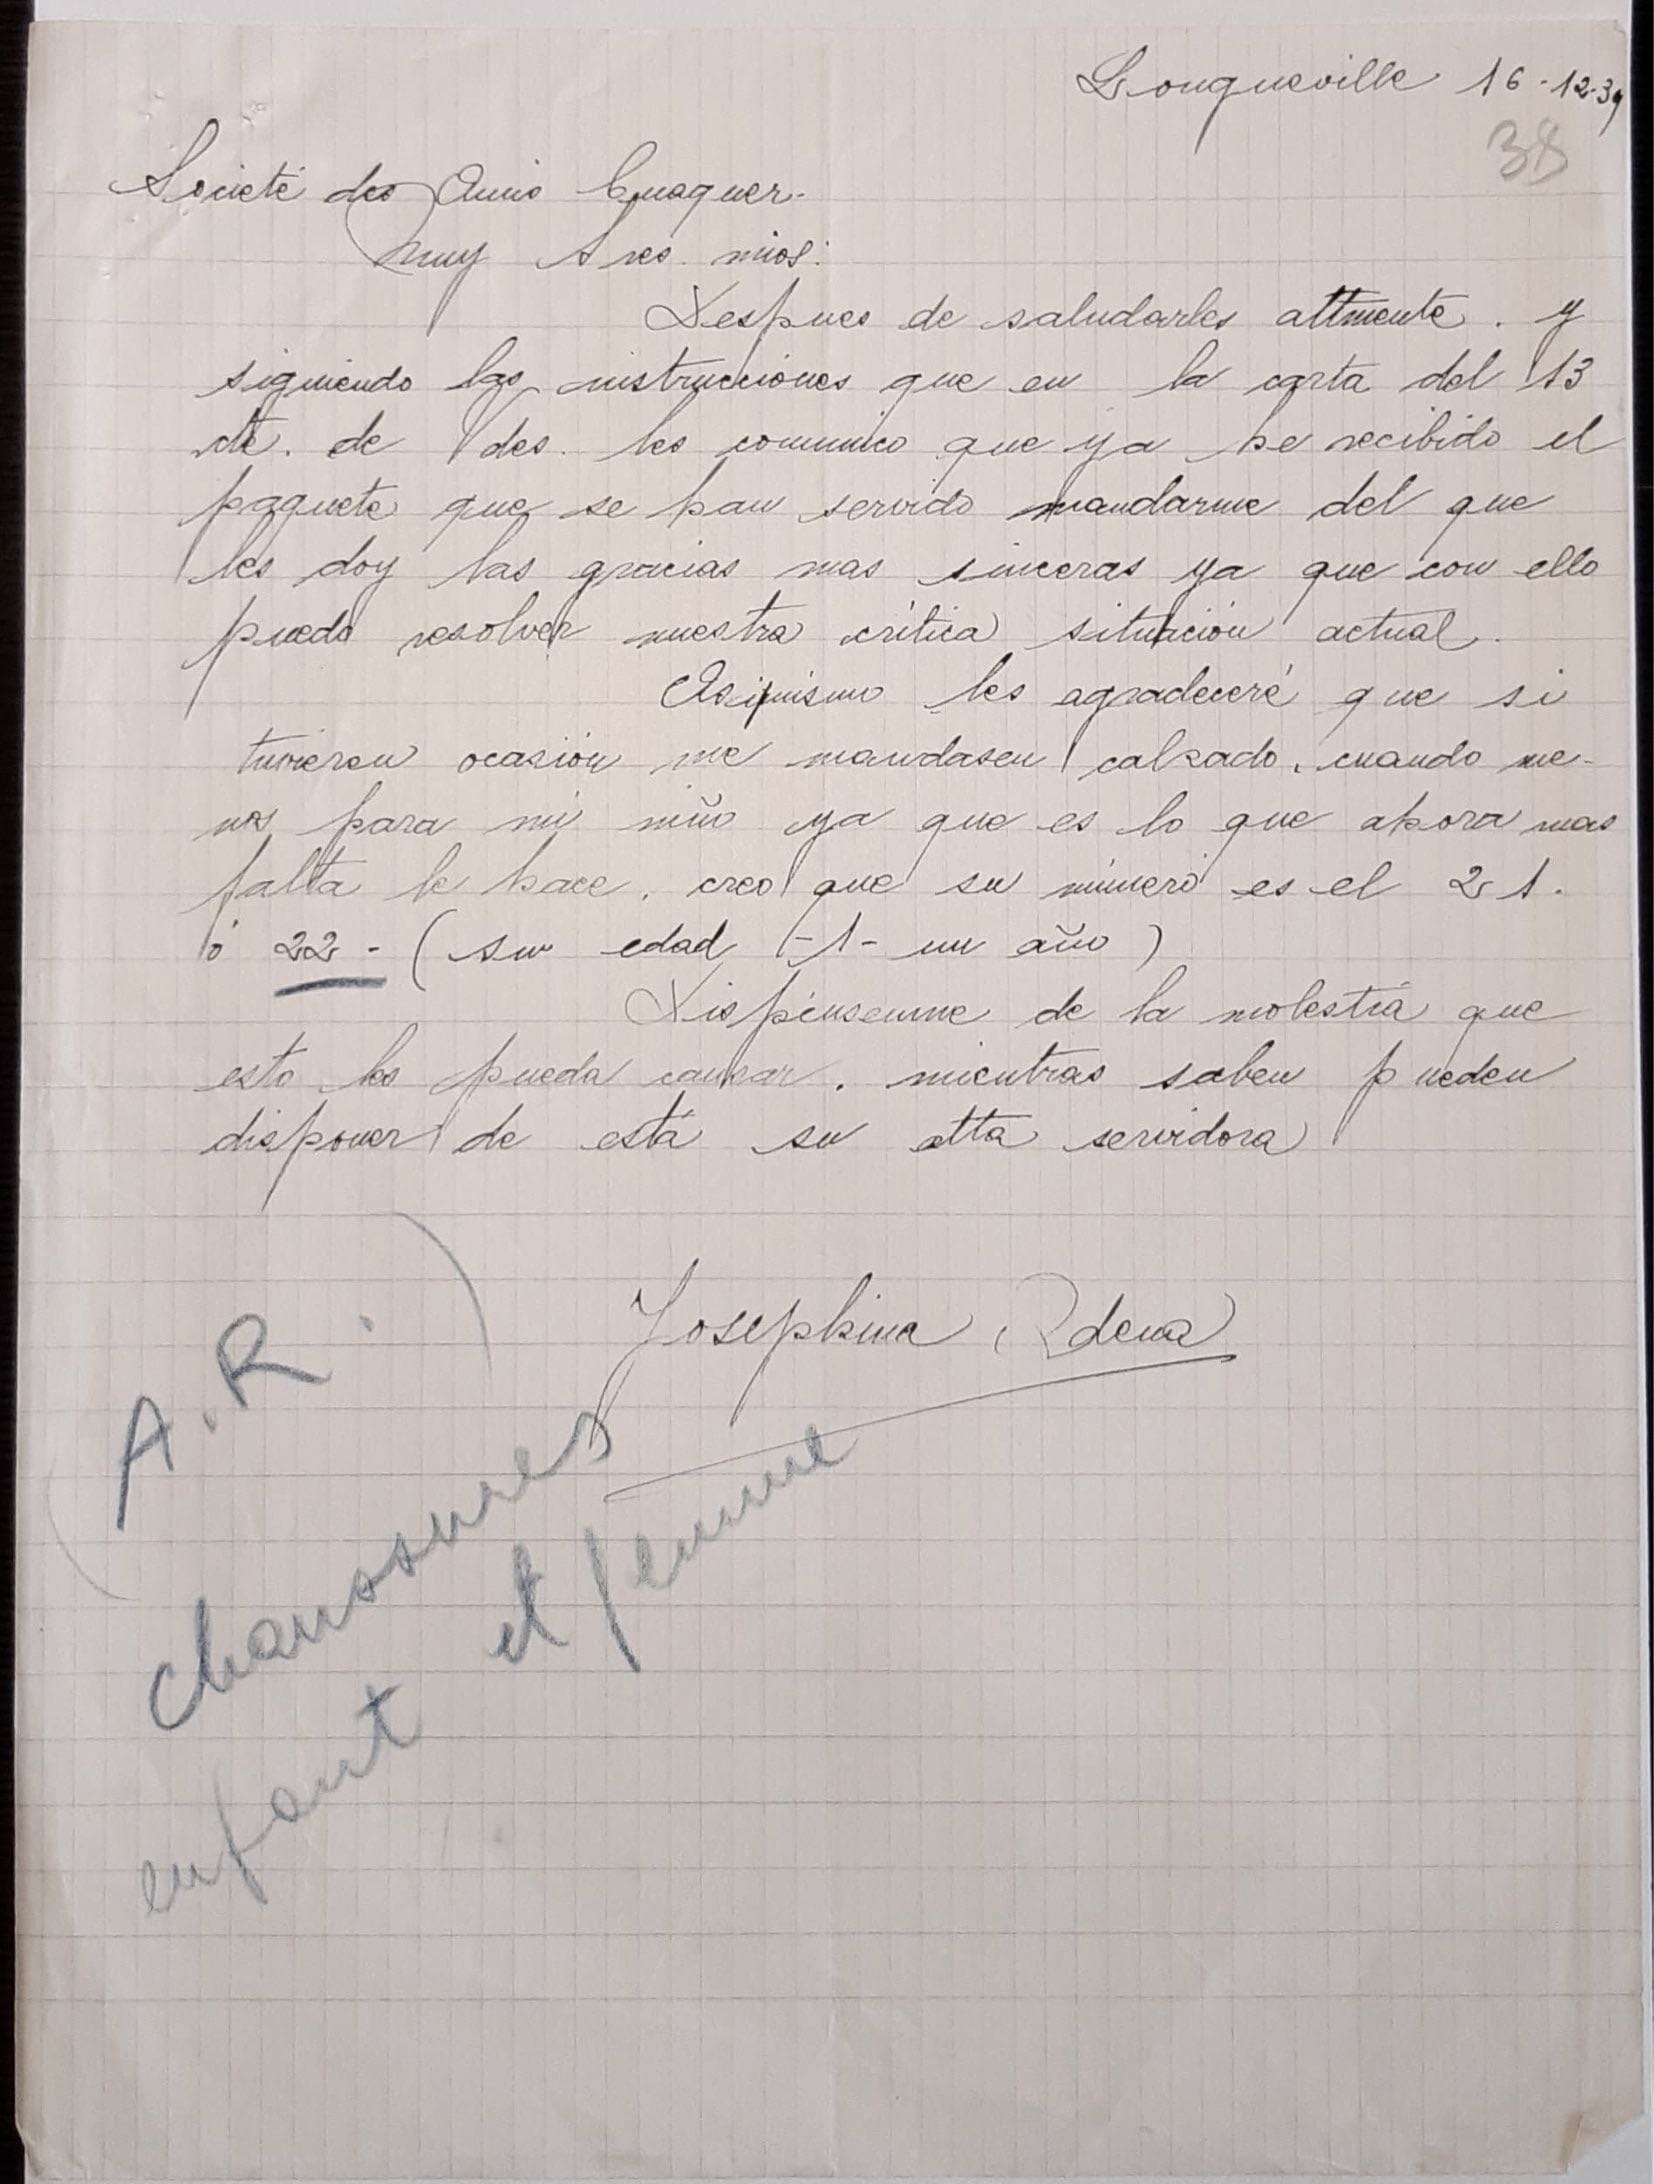 Longueville 16-12-39
38
Societé des Amis Cuaquer.
Muy Sres. mios:
Despues de saludarles attmente. y
siguiendo las instrucciones que en la carta del 13
cte. de des. les comunico que ya he recibido el
paquete que se han servido mandarme del que
les doy las gracias mas sinceras ya que con ello
puedo resolver nuestra crítica situación actual.
Asimismo les agradeceré que si
tuvieren ocasión me mandasen calzado, cuando me-
nos para mi niño ya que es lo que ahora mas
falta le hace. creo que su número es el 21.
ó 22 - (su edad -1- un año)
Dispénsenme de la molestia que
esto les pueda causar. mientras saben pueden
disponer de está su atta servidora
Josephina Rdena
(A.R.)
chaussures
enfant et femme